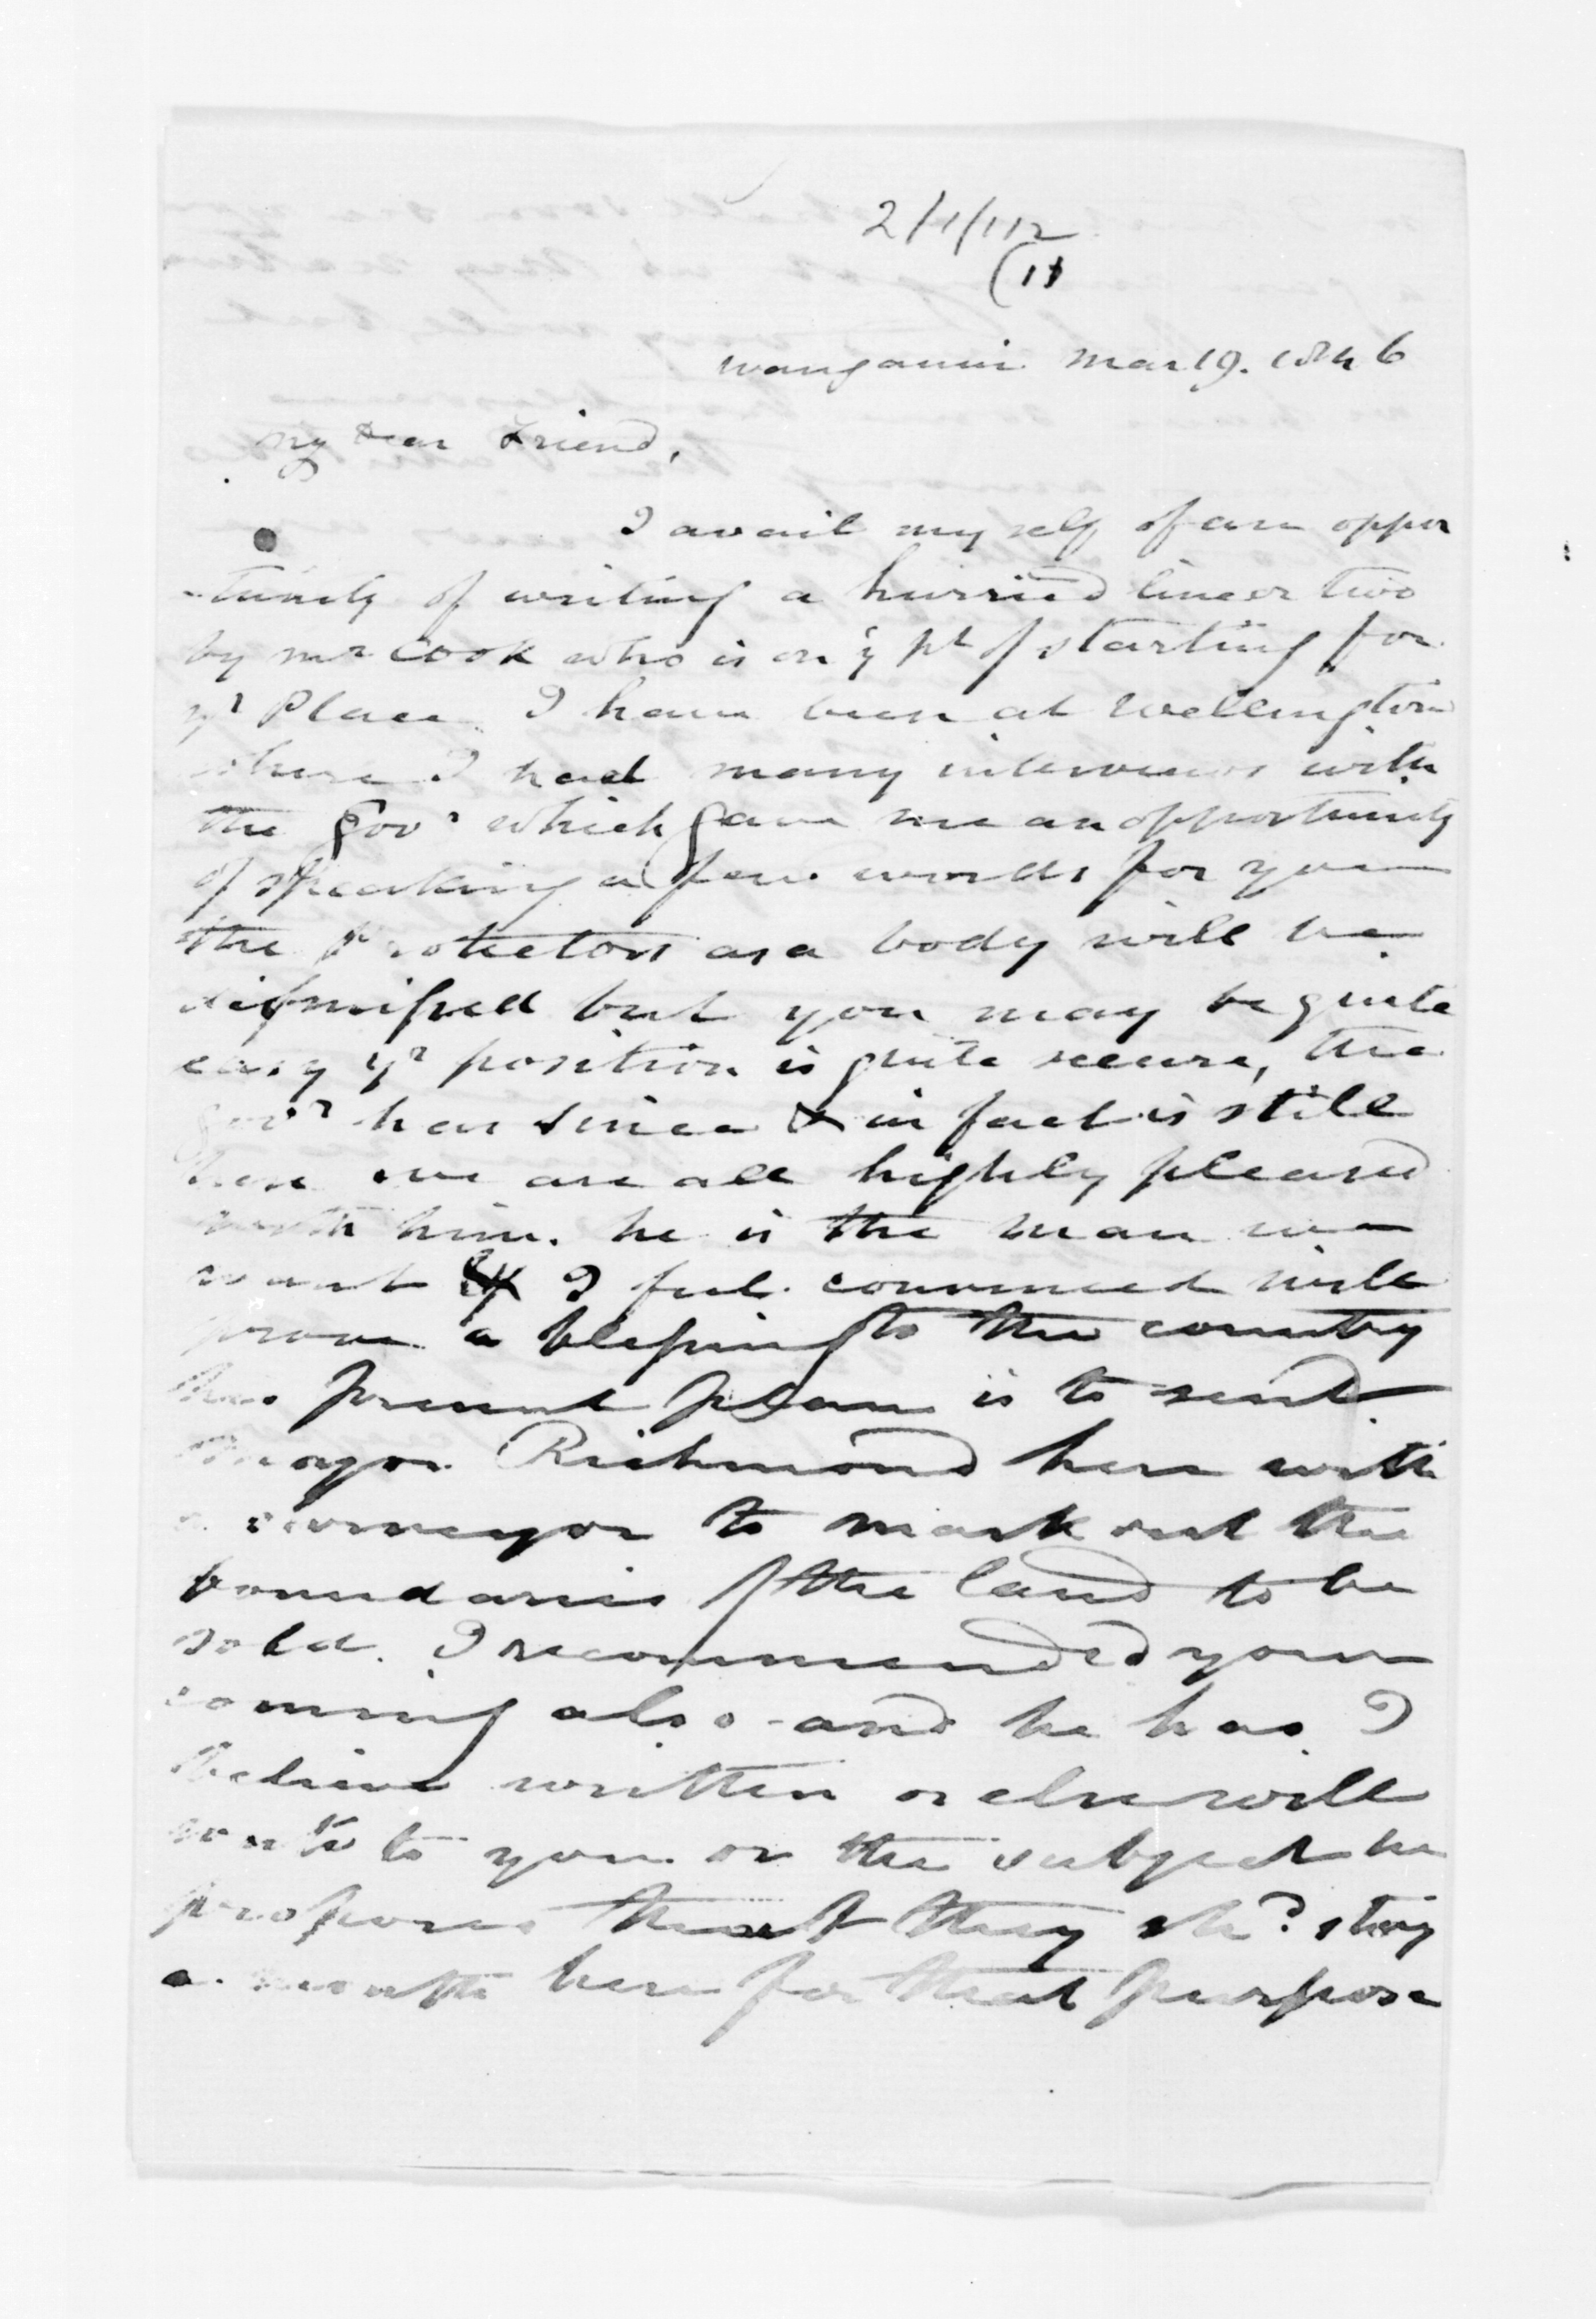 2/1/112
(11
Wanganui Mar 19. 1846
My Dear Friend,
I avail myself of an oppor
-tunity of writing a hurried line or two
by Mr Cook who is on ye pt of starting for
yr Place. I have been at Wellington
where I had many interviews with
the Govr which gave me an opportunity
of speaking a few words for you
the Protectors as a body will be
dismissed but you may be quite
easy yr position is quite secure, the
Govr has since & in fact is still
here we are all highly pleased
with him. he is the man we
want & I feel convinced will
prove a blessing to the country
his present plan is to send
Mayor Richmond here with
a surveyor to mark out the
boundaries of the land to be
sold. I recommended your
coming also and he has I
believe written or else will
write to you on the subject he
proposes that they shd stay
a month here for that purpose